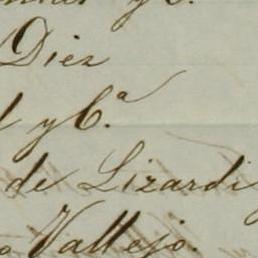 y C.
Diez
y C.ª
de Lizardi
Vallejo.